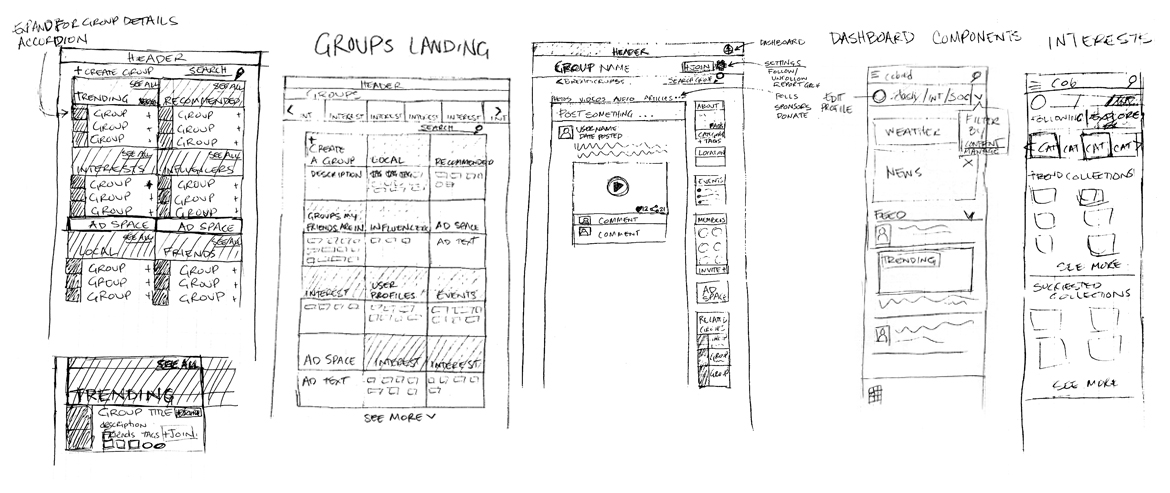 EXPAND FOR GROUP DETAILS
ACCORDION
HEADER
+ CREATE GROUP SEARCH
SEE ALL SEE ALL
TRENDING RECOMMENDED
GROUP GROUP
GROUP GROUP
GROUP GROUP
SEE ALL SEE ALL
INTERESTS INFLUENCERS
GROUP + GROUP +
GROUP + GROUP +
GROUP + GROUP +
AD SPACE AD SPACE
SEE ALL SEE ALL
LOCAL FRIENDS
GROUP + GROUP +
GROUP + GROUP +
GROUP + GROUP +
SEE ALL
TRENDING
GROUP TITLE
description
friends TAGS +JOIN
GROUPS LANDING
HEADER
GROUPS
< INT INTEREST INTEREST INTEREST INTEREST INT >
SEARCH
+
CREATE
A GROUP LOCAL RECOMMENDED
DESCRIPTION
GROUPS MY
FRIENDS ARE IN INFLUENCER AD SPACE
AD TEXT
INTEREST USER PROFILES EVENTS
AD SPACE INTEREST INTEREST
AD TEXT
SEE MORE
HEADER
GROUP NAME +JOIN
< BREADCRUMBS SEARCH GROUP
VIDEOS AUDIO ARTICLES
POST SOMETHING ...
USER NAME
DATE POSTED
COMMENT
COMMENT
ABOUT
+ TAGS
LOCATION
EVENTS
MEMBERS
INVITE +
AD
SPACE
RELATED
GROUP
GROUP
DASHBOARD
SETTINGS
FOLLOW/
UNFOLLOW
REPORT GROUP
POLLS
SPONSORS
DONATE
DASHBOARD COMPONENTS
EDIT
PROFILE
WEATHER
FILTER
BY
CONTENT
MANAGE
X
NEWS
FEED
TRENDING
INTERESTS
FOLLOWING EXPLORE
< CAT CAT CAT CAT >
TREND COLLECTIONS
SEE MORE
SUGGESTED
COLLECTIONS
SEE MORE